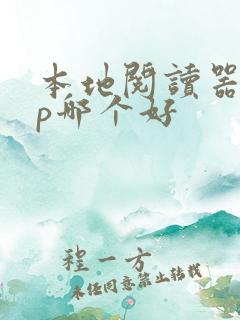 本地閱讀器
p哪个好
程一方
未经同意禁止转载